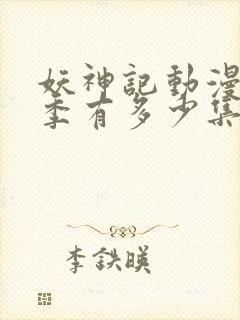 妖神記動漫
季有多少集
李鉄暎